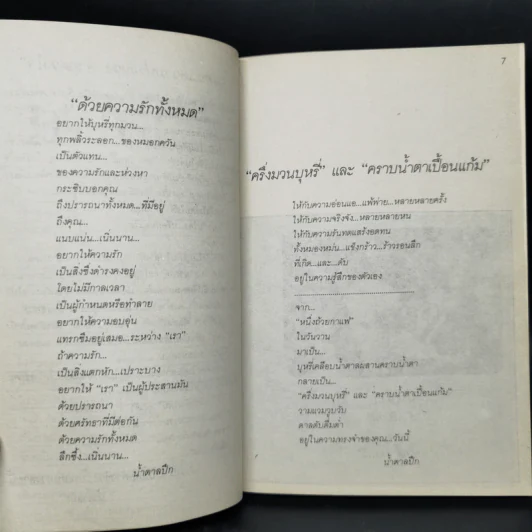 "ด้วยความรักทั้งหมด"
อยากให้บุหรี่ทุกมวน...
ทุกพลิ้วระลอก...ของหมอกควัน
เป็นตัวแทน...
ของความรักและห่วงหา
กระซิบบอกคุณ
ถึงปรารถนาทั้งหมด...ที่มีอยู่
ถึงคุณ...
แนบแน่น...เนิ่นนาน...
อยากให้ความรัก
เป็นสิ่งซึ่งดำรงคงอยู่
โดยไม่มีกาลเวลา
เป็นผู้กำหนดหรือทำลาย
อยากให้ความอบอุ่น
แทรกซึมอยู่เสมอ...ระหว่าง "เรา"
ถ้าความรัก...
เป็นสิ่งแตกหัก...เปราะบาง
อยากให้ "เรา" เป็นผู้ประสานมัน
ด้วยปรารถนา
ด้วยศรัทธาที่มีต่อกัน
ด้วยความรักทั้งหมด
ลึกซึ้ง...เนิ่นนาน...
น้ำตาลปึก
7
"ครึ่งมวนบุหรี่" และ "คราบน้ำตาเปื้อนแก้ม"
ให้กับความอ่อนแอ...แพ้พ่าย...หลายหลายครั้ง
ให้กับความจริงจัง...หลายหลายหน
ให้กับความรันทดแสร้งอดทน
ทั้งหมองหม่น...แข็งกร้าว...ร้าวรอนลึก
ที่เกิด...และ...ดับ
อยู่ในความรู้สึกของตัวเอง
จาก...
"หนึ่งถ้วยกาแฟ"
ในวันวาน
มาเป็น...
บุหรี่เคลือบน้ำตาลผสานคราบน้ำตา
กลายเป็น...
"ครึ่งมวนบุหรี่" และ "คราบน้ำตาเปื้อนแก้ม"
วามแวมวูบวับ
ดาลดับดื่มด่ำ
อยู่ในความทรงจำของคุณ...วันนี้
น้ำตาลปึก